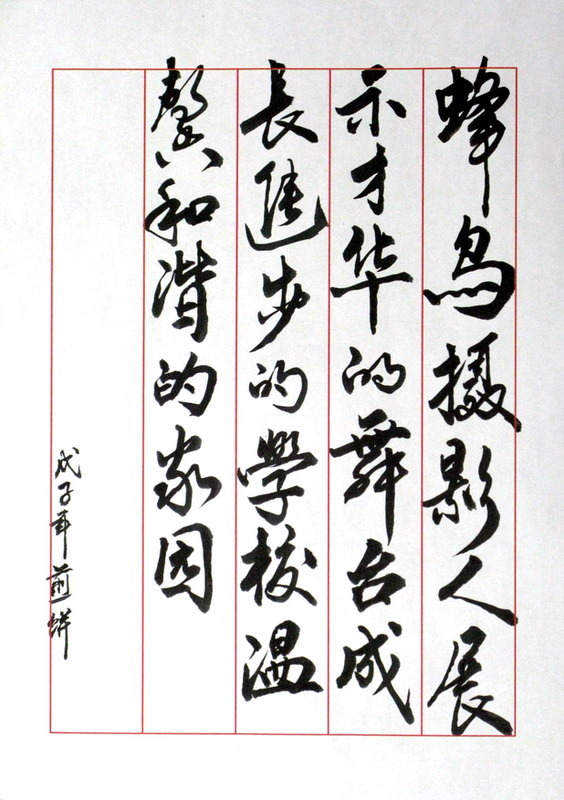 蜂鸟摄影人展
示才华的舞台成
長進步的學校温
馨和谐的家园
戊子年煎饼